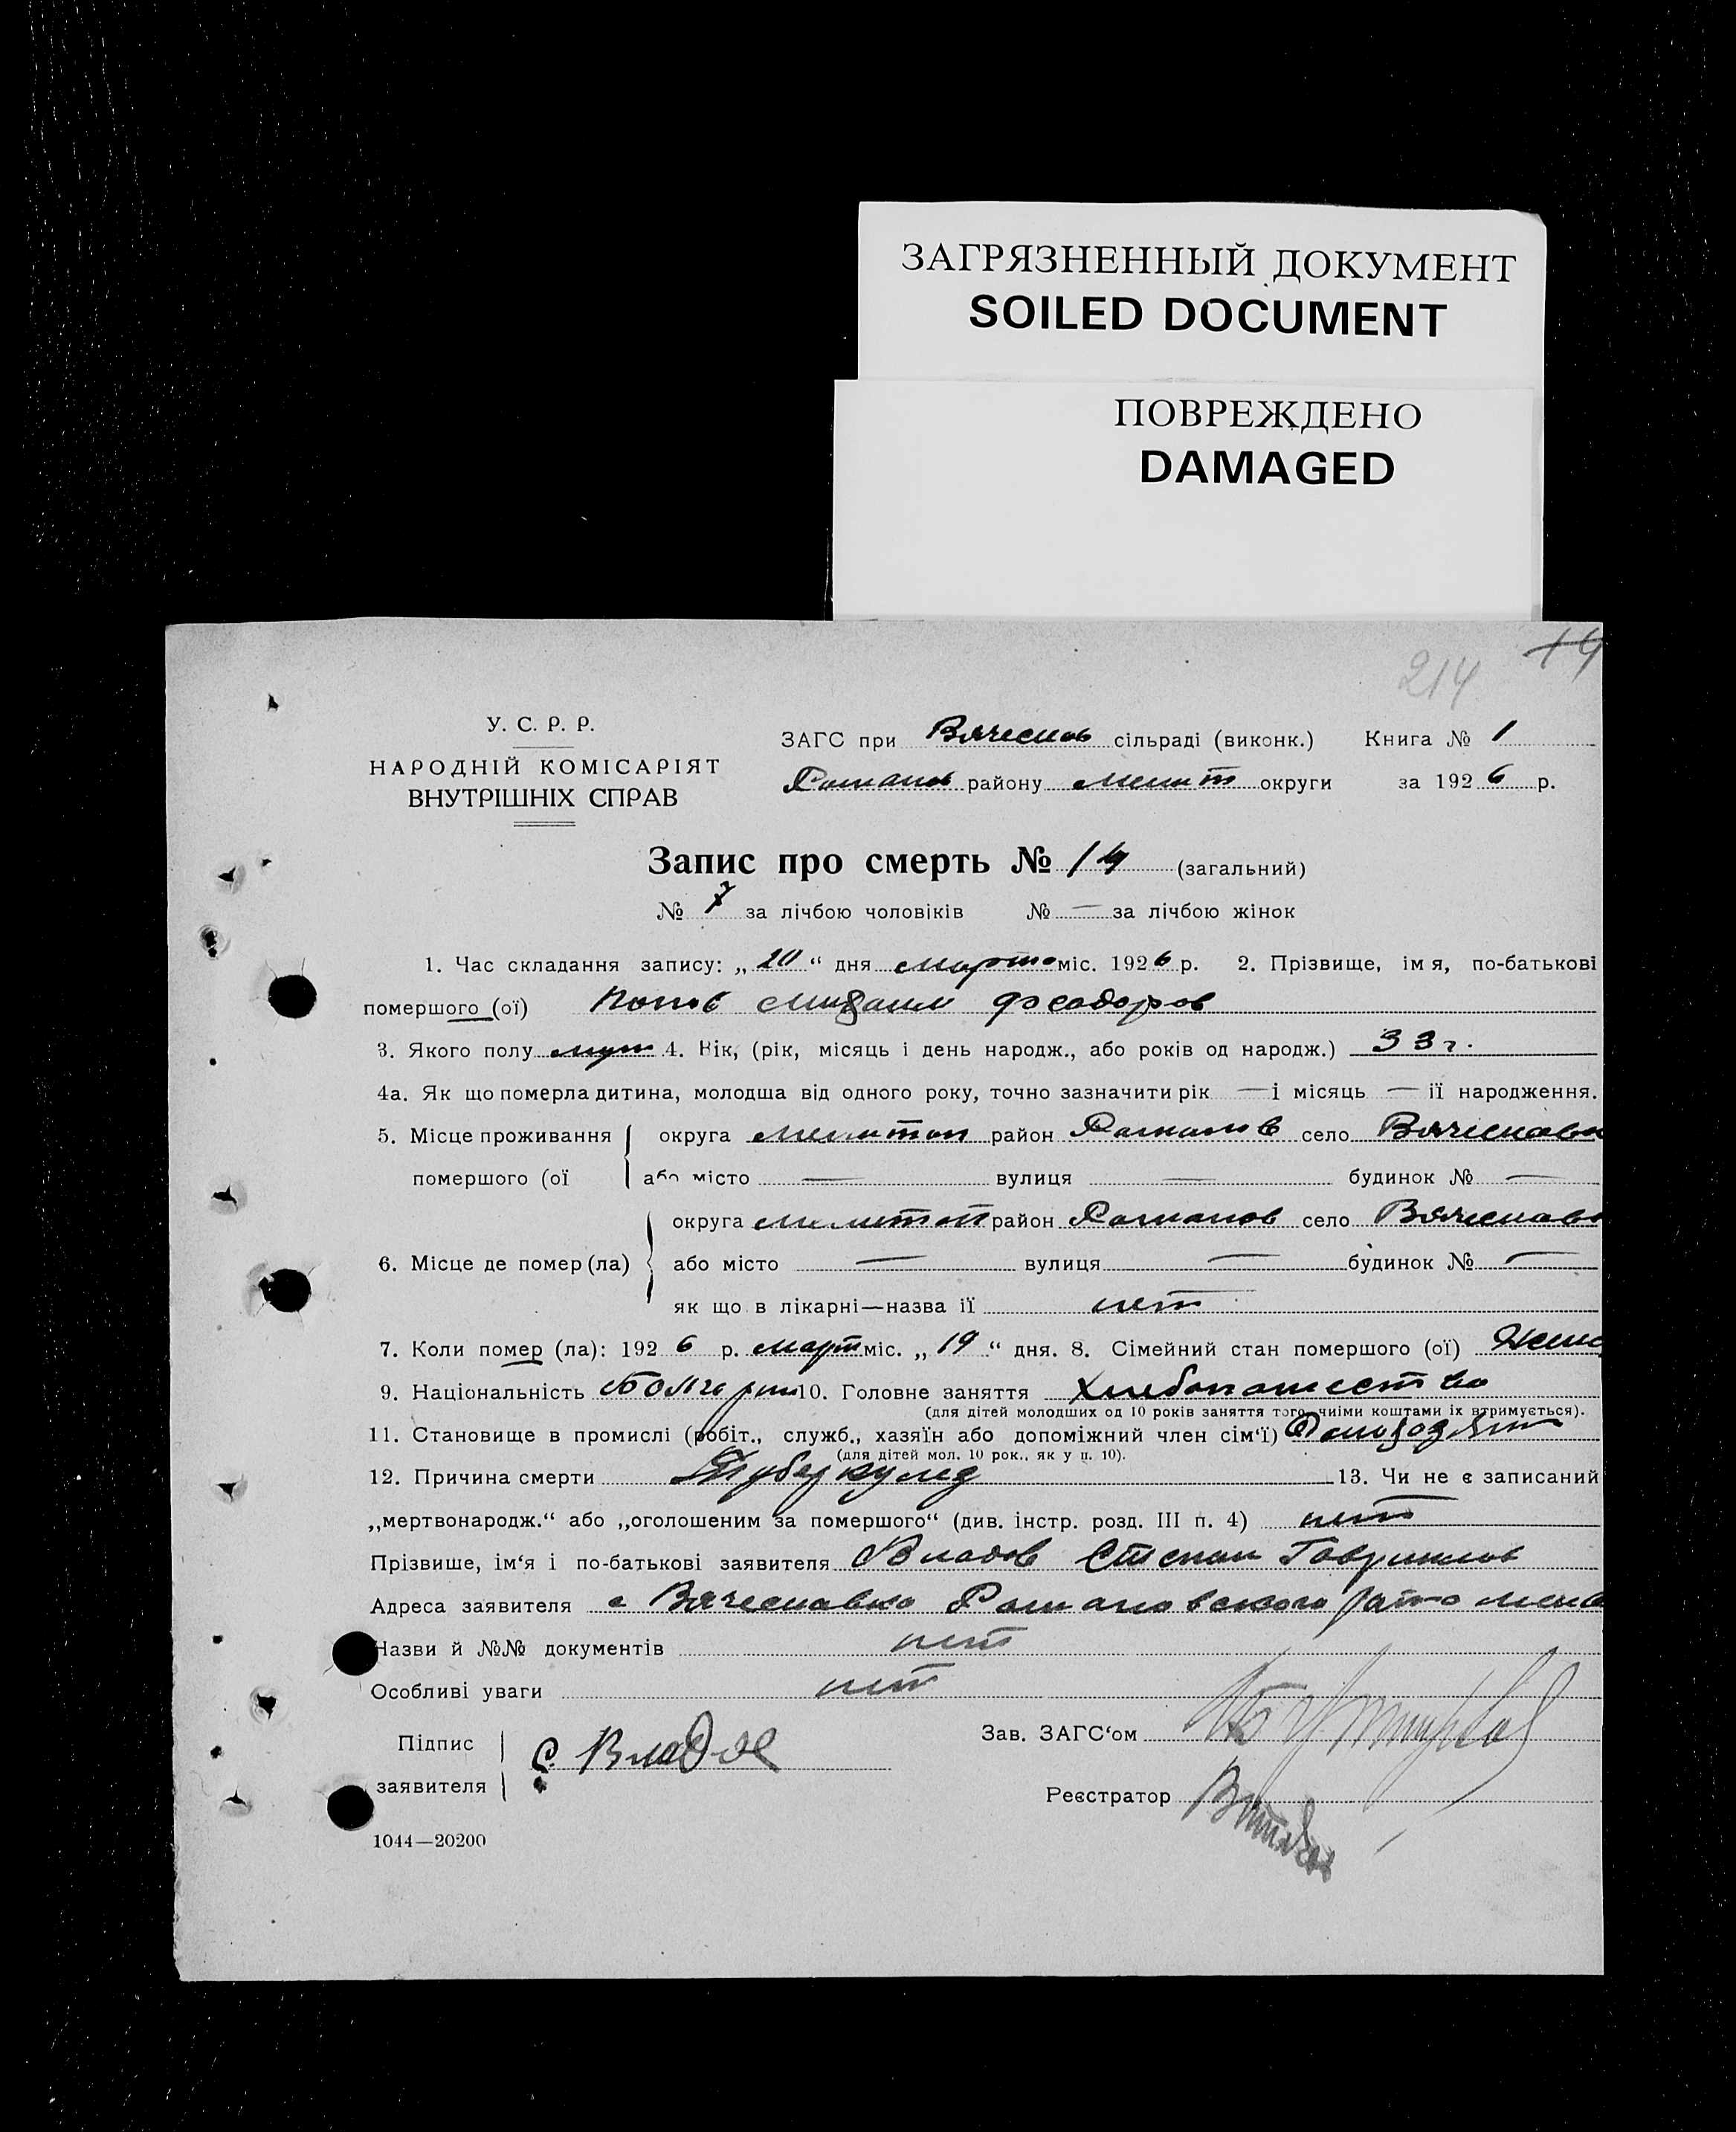 ЗАГРЯЗНЕННЫЙ ДОКУМЕНТ
SOILED DOCUMENT
ПОВРЕЖДЕНО
DAMAGED
214 14
У. С. Р. Р.
НАРОДНІЙ КОМІСАРІЯТ
ВНУТРІШНІХ СПРАВ
ЗАГС при Вячеслов сільраді (виконк.) Книга № 1
Романов району Мелит округи за 1926 р.
Запис про смерть № 14 (загальний)
№ 7 за лічбою чоловіків № — за лічбою жінок
1. Час складання запису: „20“ дня марта міс. 1926 р. 2. Прізвище, імя, по-батькові
помершого (ої) Попов Михаил Феодоров
3. Якого полу муж 4. Вік, (рік, місяць і день народж., або років од народж.) 33 г.
4а. Як що померла дитина, молодша від одного року, точно зазначити рік — і місяць — ії народження.
5. Місце проживання округа Мелитоп район Романов село Вячеславка
помершого (ої або місто — вулиця — будинок № —
округа Мелитоп район Романов село Вячеславк
6. Місце де помер (ла) або місто — вулиця — будинок № —
як що в лікарні—назва ії нет
7. Коли помер (ла): 1926 р. март міс. „19“ дня. 8. Сімейний стан помершого (ої)
9. Національність Болгарин 10. Головне заняття Хлебопашество
(для дітей молодших од 10 років заняття того, чиіми коштами іх втримується).
11. Становище в промислі (робіт., служб., хазяїн або допоміжний член сім‘ї) Домохозяин
(для дітей мол. 10 рок., як у п. 10).
12. Причина смерти Туберкулез 13. Чи не є записаний
„мертвонародж.“ або „оголошеним за помершого“ (див. інстр. розд. III п. 4) нет
Прізвише, ім‘я і по-батькові заявителя Владов Степан Гаврилов
Адреса заявителя с Вячеславка Романовского
Назви й №№ документів нет
Особливі уваги нет
Підпис
заявителя С. Владов
Зав. ЗАГС‘ом
Реєстратор
1044—20200